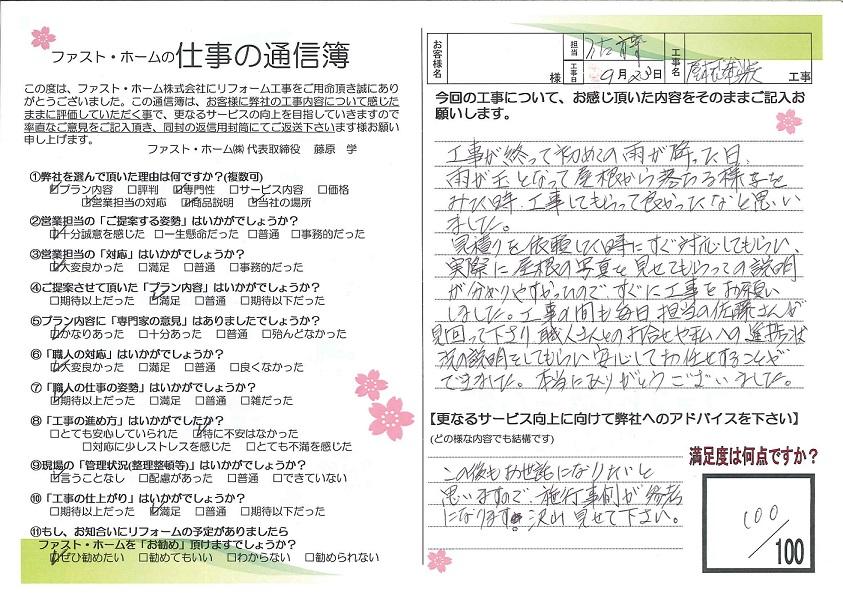 ファスト・ホームの仕事の通信簿
この度は、ファスト・ホーム株式会社にリフォーム工事をご用命頂き誠にあり
がとうございました。この通信簿は、お客様に弊社の工事内容について感じた
ままに評価していただく事で、更なるサービスの向上を目指していきますので
率直なご意見をご記入頂き、同封の返信用封筒にてご返送下さいます様お願い
申し上げます。
ファスト・ホーム㈱ 代表取締役 藤原 学
①弊社を選んで頂いた理由は何ですか?(複数可)
☑プラン内容 □評判 ☑専門性 □サービス内容 □価格
☑営業担当の対応 ☑商品説明 ☑当社の場所
②営業担当の「ご提案する姿勢」はいかがでしょうか?
☑十分誠意を感じた □一生懸命だった □普通 □事務的だった
③営業担当の「対応」はいかがでしょうか?
☑大変良かった □満足 □普通 □事務的だった
④ご提案させて頂いた「プラン内容」はいかがでしょうか?
□期待以上だった ☑満足 □普通 □期待以下だった
⑤プラン内容に「専門家の意見」はありましたでしょうか?
☑かなりあった □十分あった □普通 □殆んどなかった
⑥「職人の対応」はいかがでしょうか?
☑大変良かった □満足 □普通 □良くなかった
⑦「職人の仕事の姿勢」はいかがでしょうか?
☑期待以上だった □満足 □普通 □雑だった
⑧「工事の進め方」はいかがでしたか?
□とても安心していられた ☑特に不安はなかった
□対応に少しストレスを感じた □とても不満を感じた
⑨現場の「管理状況(整理整頓等)」はいかがでしょうか?
☑言うことなし □配慮があった □普通 □できていない
⑩「工事の仕上がり」はいかがでしょうか?
□期待以上だった ☑満足 □普通 □期待以下だった
⑪もし、お知合いにリフォームの予定がありましたら
ファスト・ホームを「お勧め」頂けますでしょうか?
☑ぜひ勧めたい □勧めてもいい □わからない □勧められない
お客様名 様 担当 佐藤 工事日 9月23日 工事名 工事
今回の工事について、お感じ頂いた内容をそのままご記入お
願いします。
工事が終って初めての雨が降った日、
雨が玉となって屋根から落ちる様子を
みた時、工事してもらって良かったなと思い
ました。
見積りを依頼した時にすぐ対応してもらい、
実際に屋根の写真を見せてもらっての説明
が分かりやすかったので、すぐに工事をお願い
しました。工事の間も毎日担当の佐藤さんが
見回って下さり、職人さんとのお打合せや私への進捗状
況の説明をしてもらい安心してお任せすることが
できました。本当にありがとうございました。
【更なるサービス向上に向けて弊社へのアドバイスを下さい】
(どの様な内容でも結構です)
この後もお世話になりたいと
思いますので、施行事例が参考
になります。沢山見せて下さい。
満足度は何点ですか?
100/100